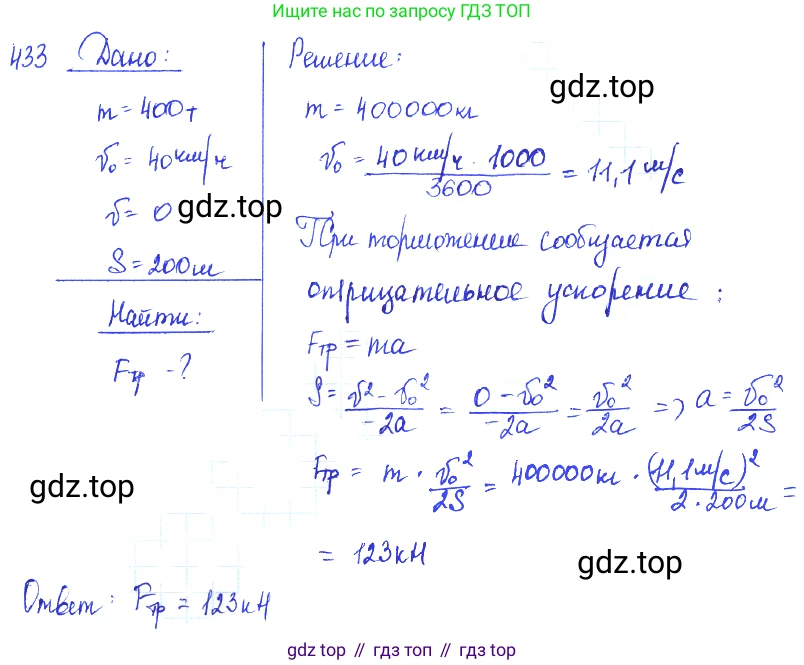 Ищите нас по запросу ГДЗ ТОП
433 Дано:
m = 400т
v₀ = 40 км/ч
v = 0
S = 200м
Найти:
Fтр - ?
Решение:
m = 400000кг
v₀ = 40 км/ч · 1000 / 3600 = 11,1 м/с
При торможение сообщается
отрицательное ускорение :
Fтр = ma
S = v² - v₀² / -2a = 0 - v₀² / -2a = v₀² / 2a => a = v₀² / 2S
Fтр = m · v₀² / 2S = 400000кг · (11,1м/с)² / 2 · 200м =
= 123кН
Ответ: Fтр = 123кН
gdz.top
gdz.top
gdz.top
gdz.top
gdz.top // гдз топ // gdz.top